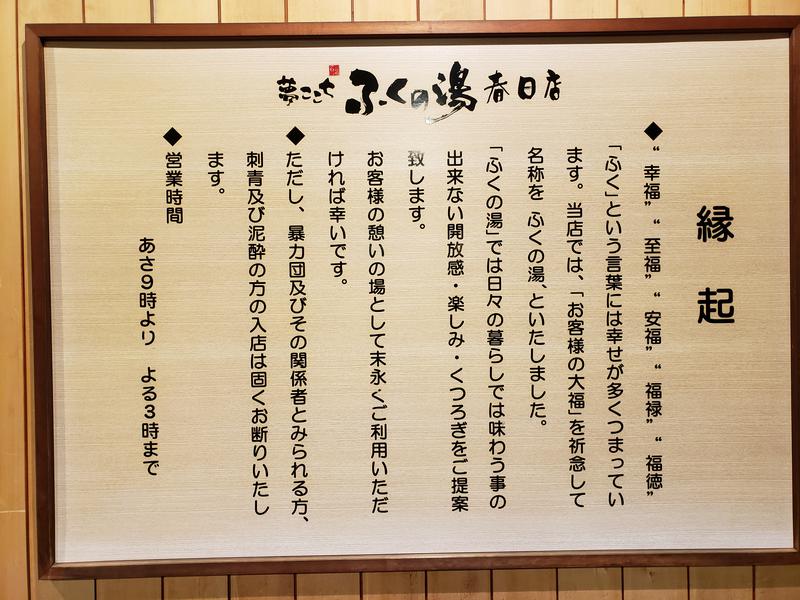 夢ごこち ふくの湯 春日店
縁起
◆“幸福”“至福”“安福”“福禄”“福徳”
「ふく」という言葉には幸せが多くつまってい
ます。当店では、「お客様の大福」を祈念して
名称を ふくの湯、といたしました。
「ふくの湯」では日々の暮らしでは味わう事の
出来ない開放感・楽しみ・くつろぎをご提案
致します。
お客様の憩いの場として末永くご利用いただ
ければ幸いです。
◆ただし、暴力団及びその関係者とみられる方、
刺青及び泥酔の方の入店は固くお断りいたし
ます。
◆営業時間
あさ9時より よる3時まで